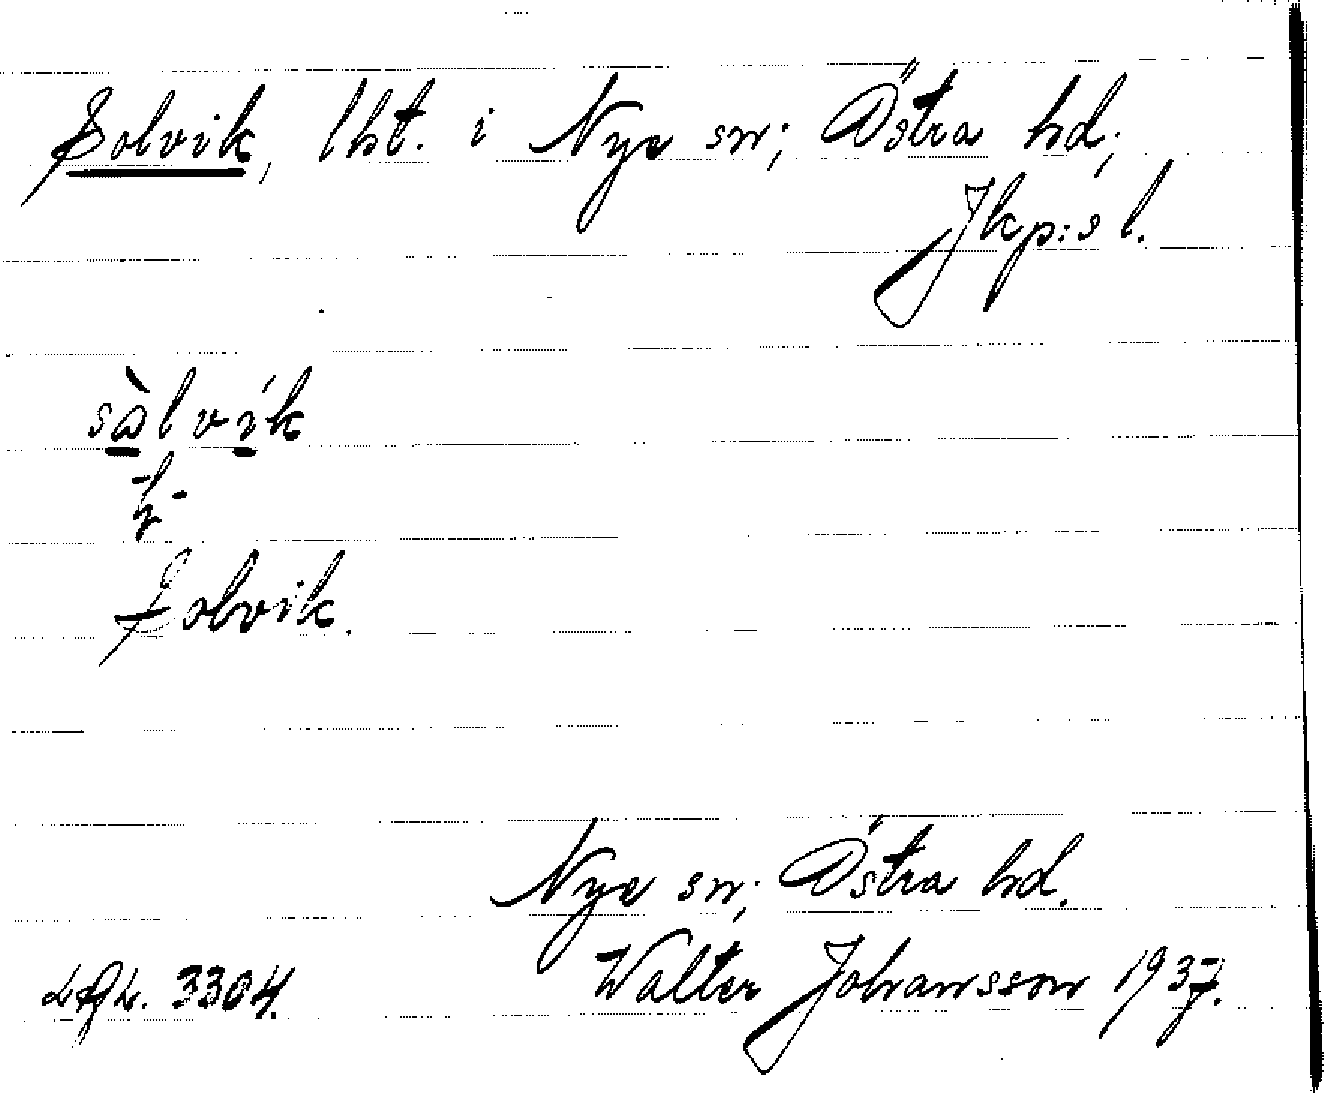 Solvik, lht. i Nye sn; Östra hd;
Jkp:s l.
sàlvík
Solvik.
Nye sn; Östra hd.
3304. Walter Johansson 1937.